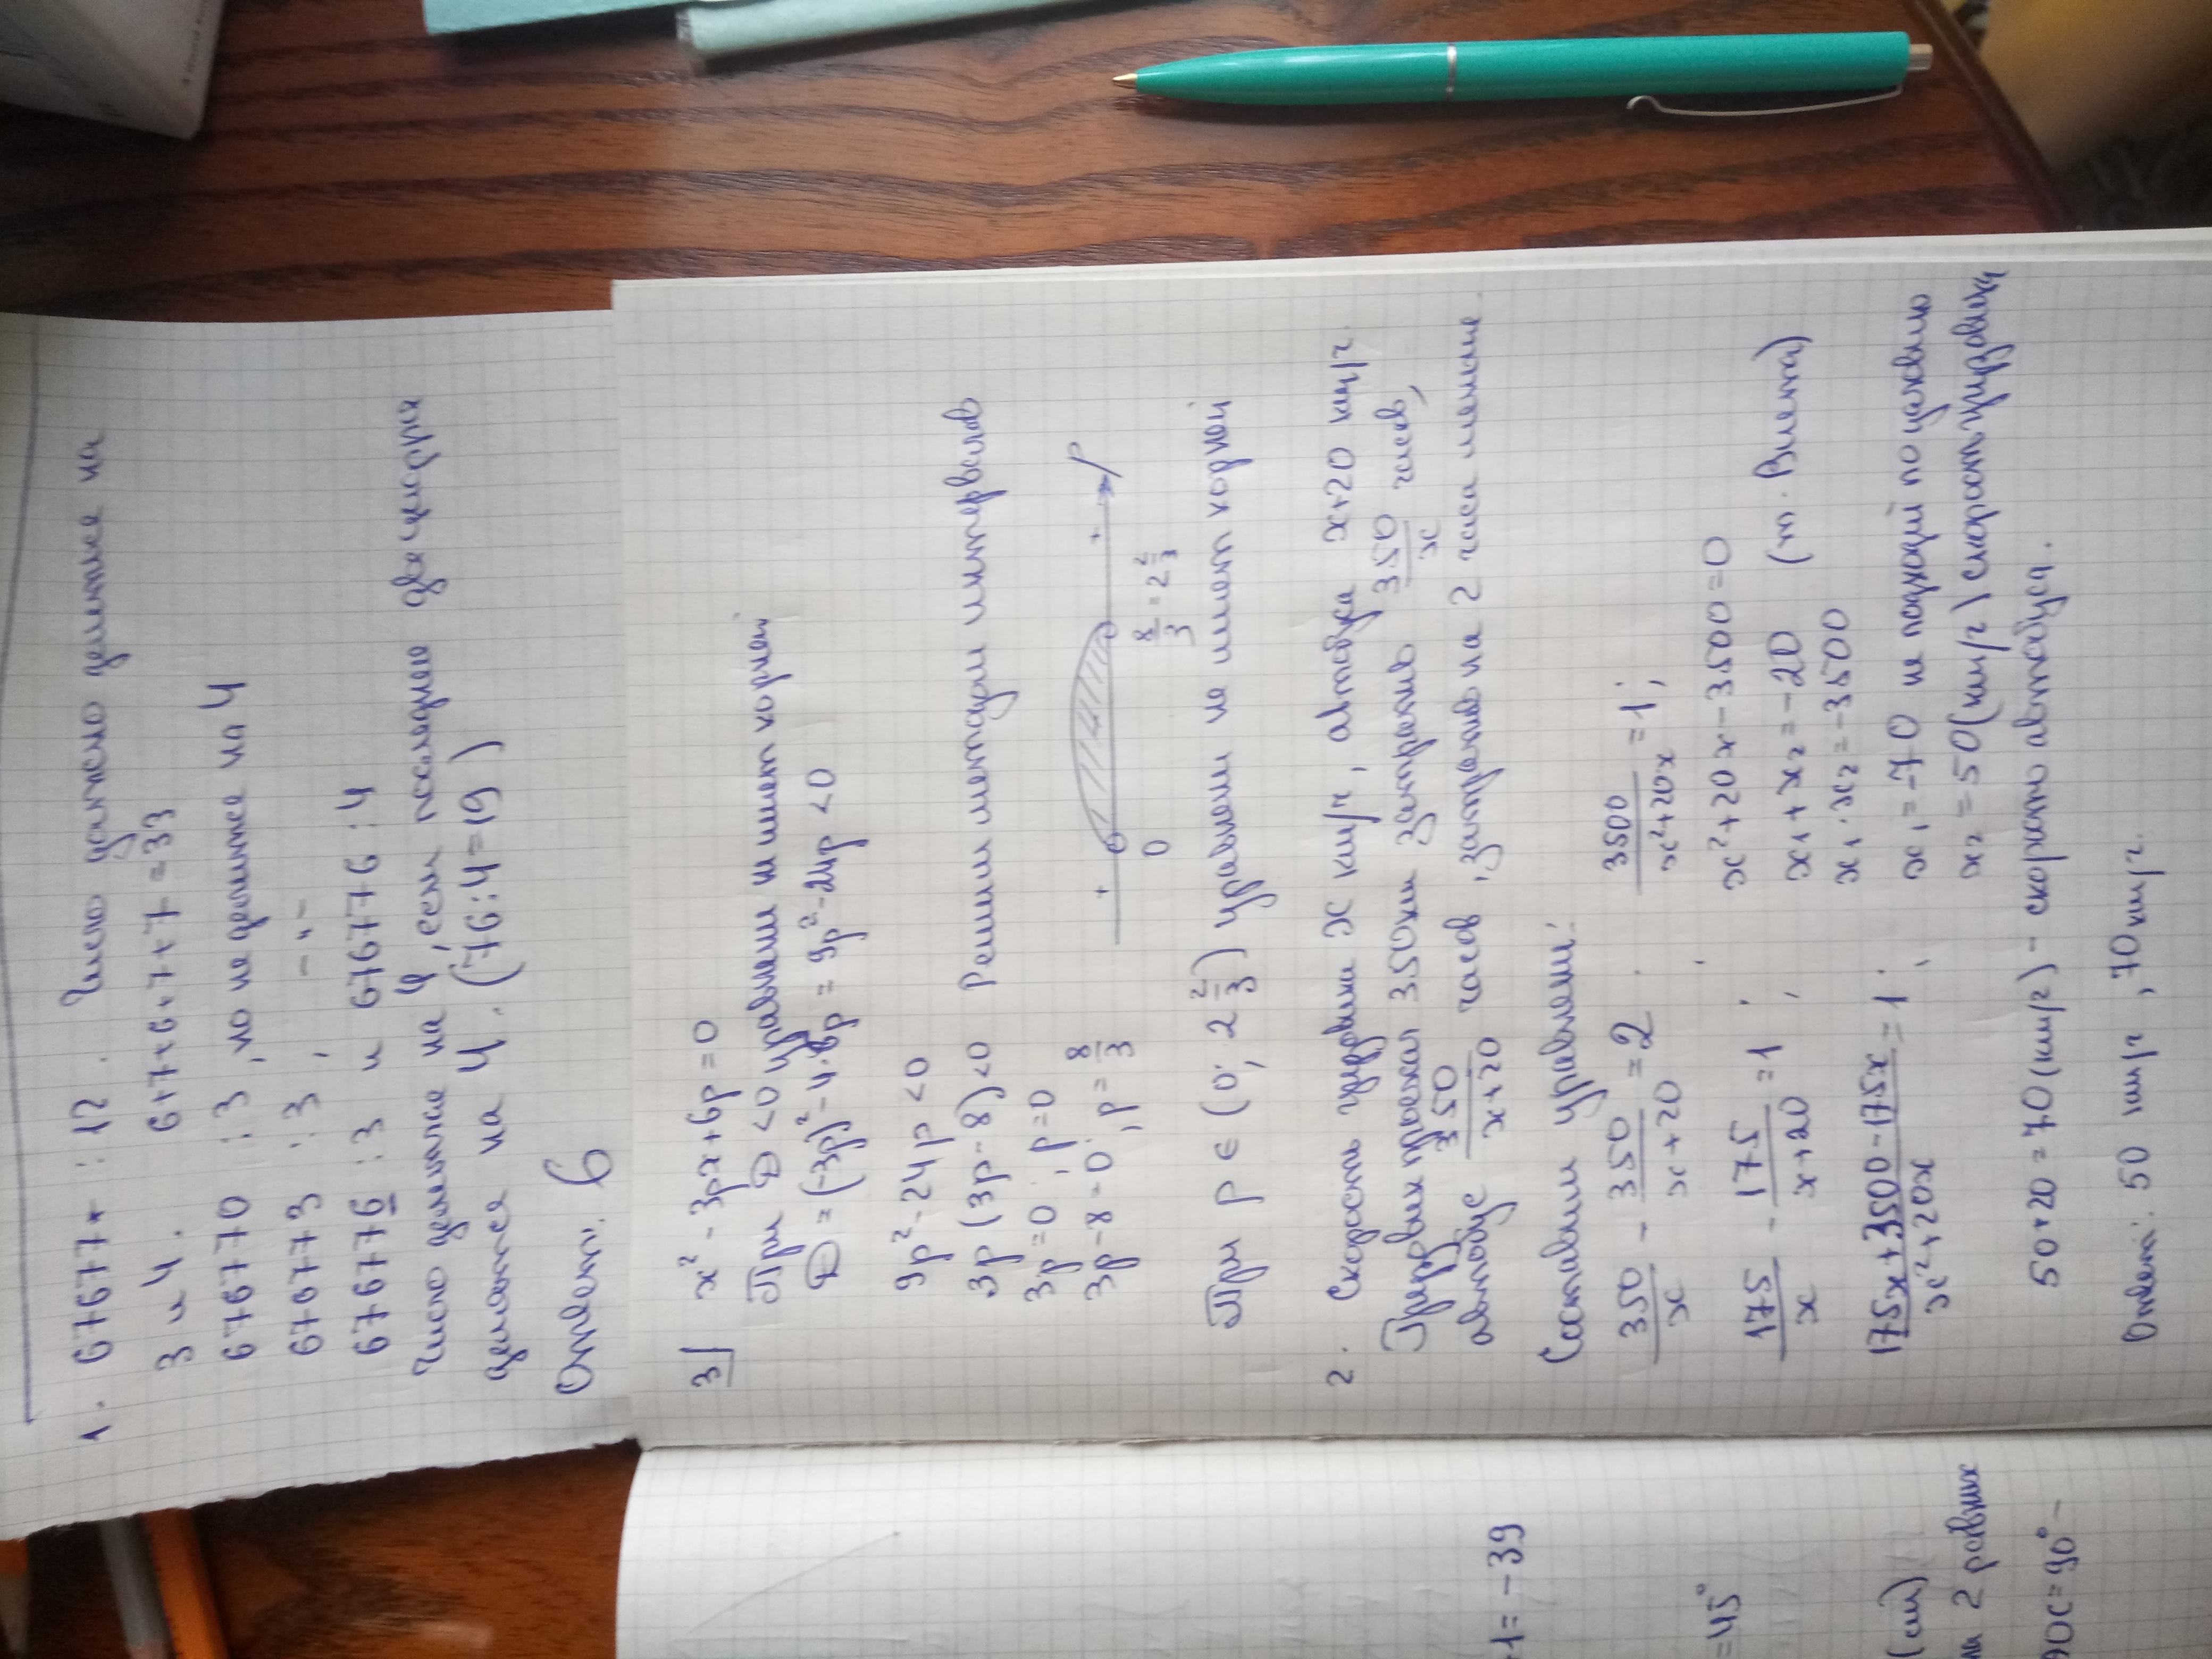 1. 67677* : 12. Число должно делится на
3 и 4. 6+7+6+7+7=33
676770 : 3, но не делится на 4
676773 : 3, -"-
676776 : 3 и 676776 : 4
Число делится на 4, если последние две цифры
делятся на 4. (76:4=19)
Ответ: 6
3) x² - 3px + 6p = 0
При D < 0 уравнение не имеет корней
D = (-3p)² - 4·6p = 9p² - 24p < 0
9p² - 24p < 0
3p (3p - 8) < 0 Решим методом интервалов
3p = 0, p = 0
3p - 8 = 0, p = 8/3
+ + p
0 8/3 = 2 2/3
При p ∈ (0; 2 2/3) уравнение не имеет корней
2. Скорость грузовика x км/г, автобуса x+20 км/г.
Грузовик проехал 350км затратив 350/x часов,
автобус 350/(x+20) часов, затратив на 2 часа меньше.
Составим уравнение:
350/x - 350/(x+20) = 2.
175/x - 175/(x+20) = 1;
(175x+3500-175x)/(x²+20x) = 1;
3500/(x²+20x) = 1;
x²+20x-3500=0
x₁+x₂=-20 (т. Виета)
x₁·x₂=-3500
x₁=-70 не подходит по условию
x₂=50(км/г) скорость грузовика
50+20=70(км/г) - скорость автобуса.
Ответ: 50 км/г, 70км/г.
1=-39
=45°
(см)
на 2 равных
90°-